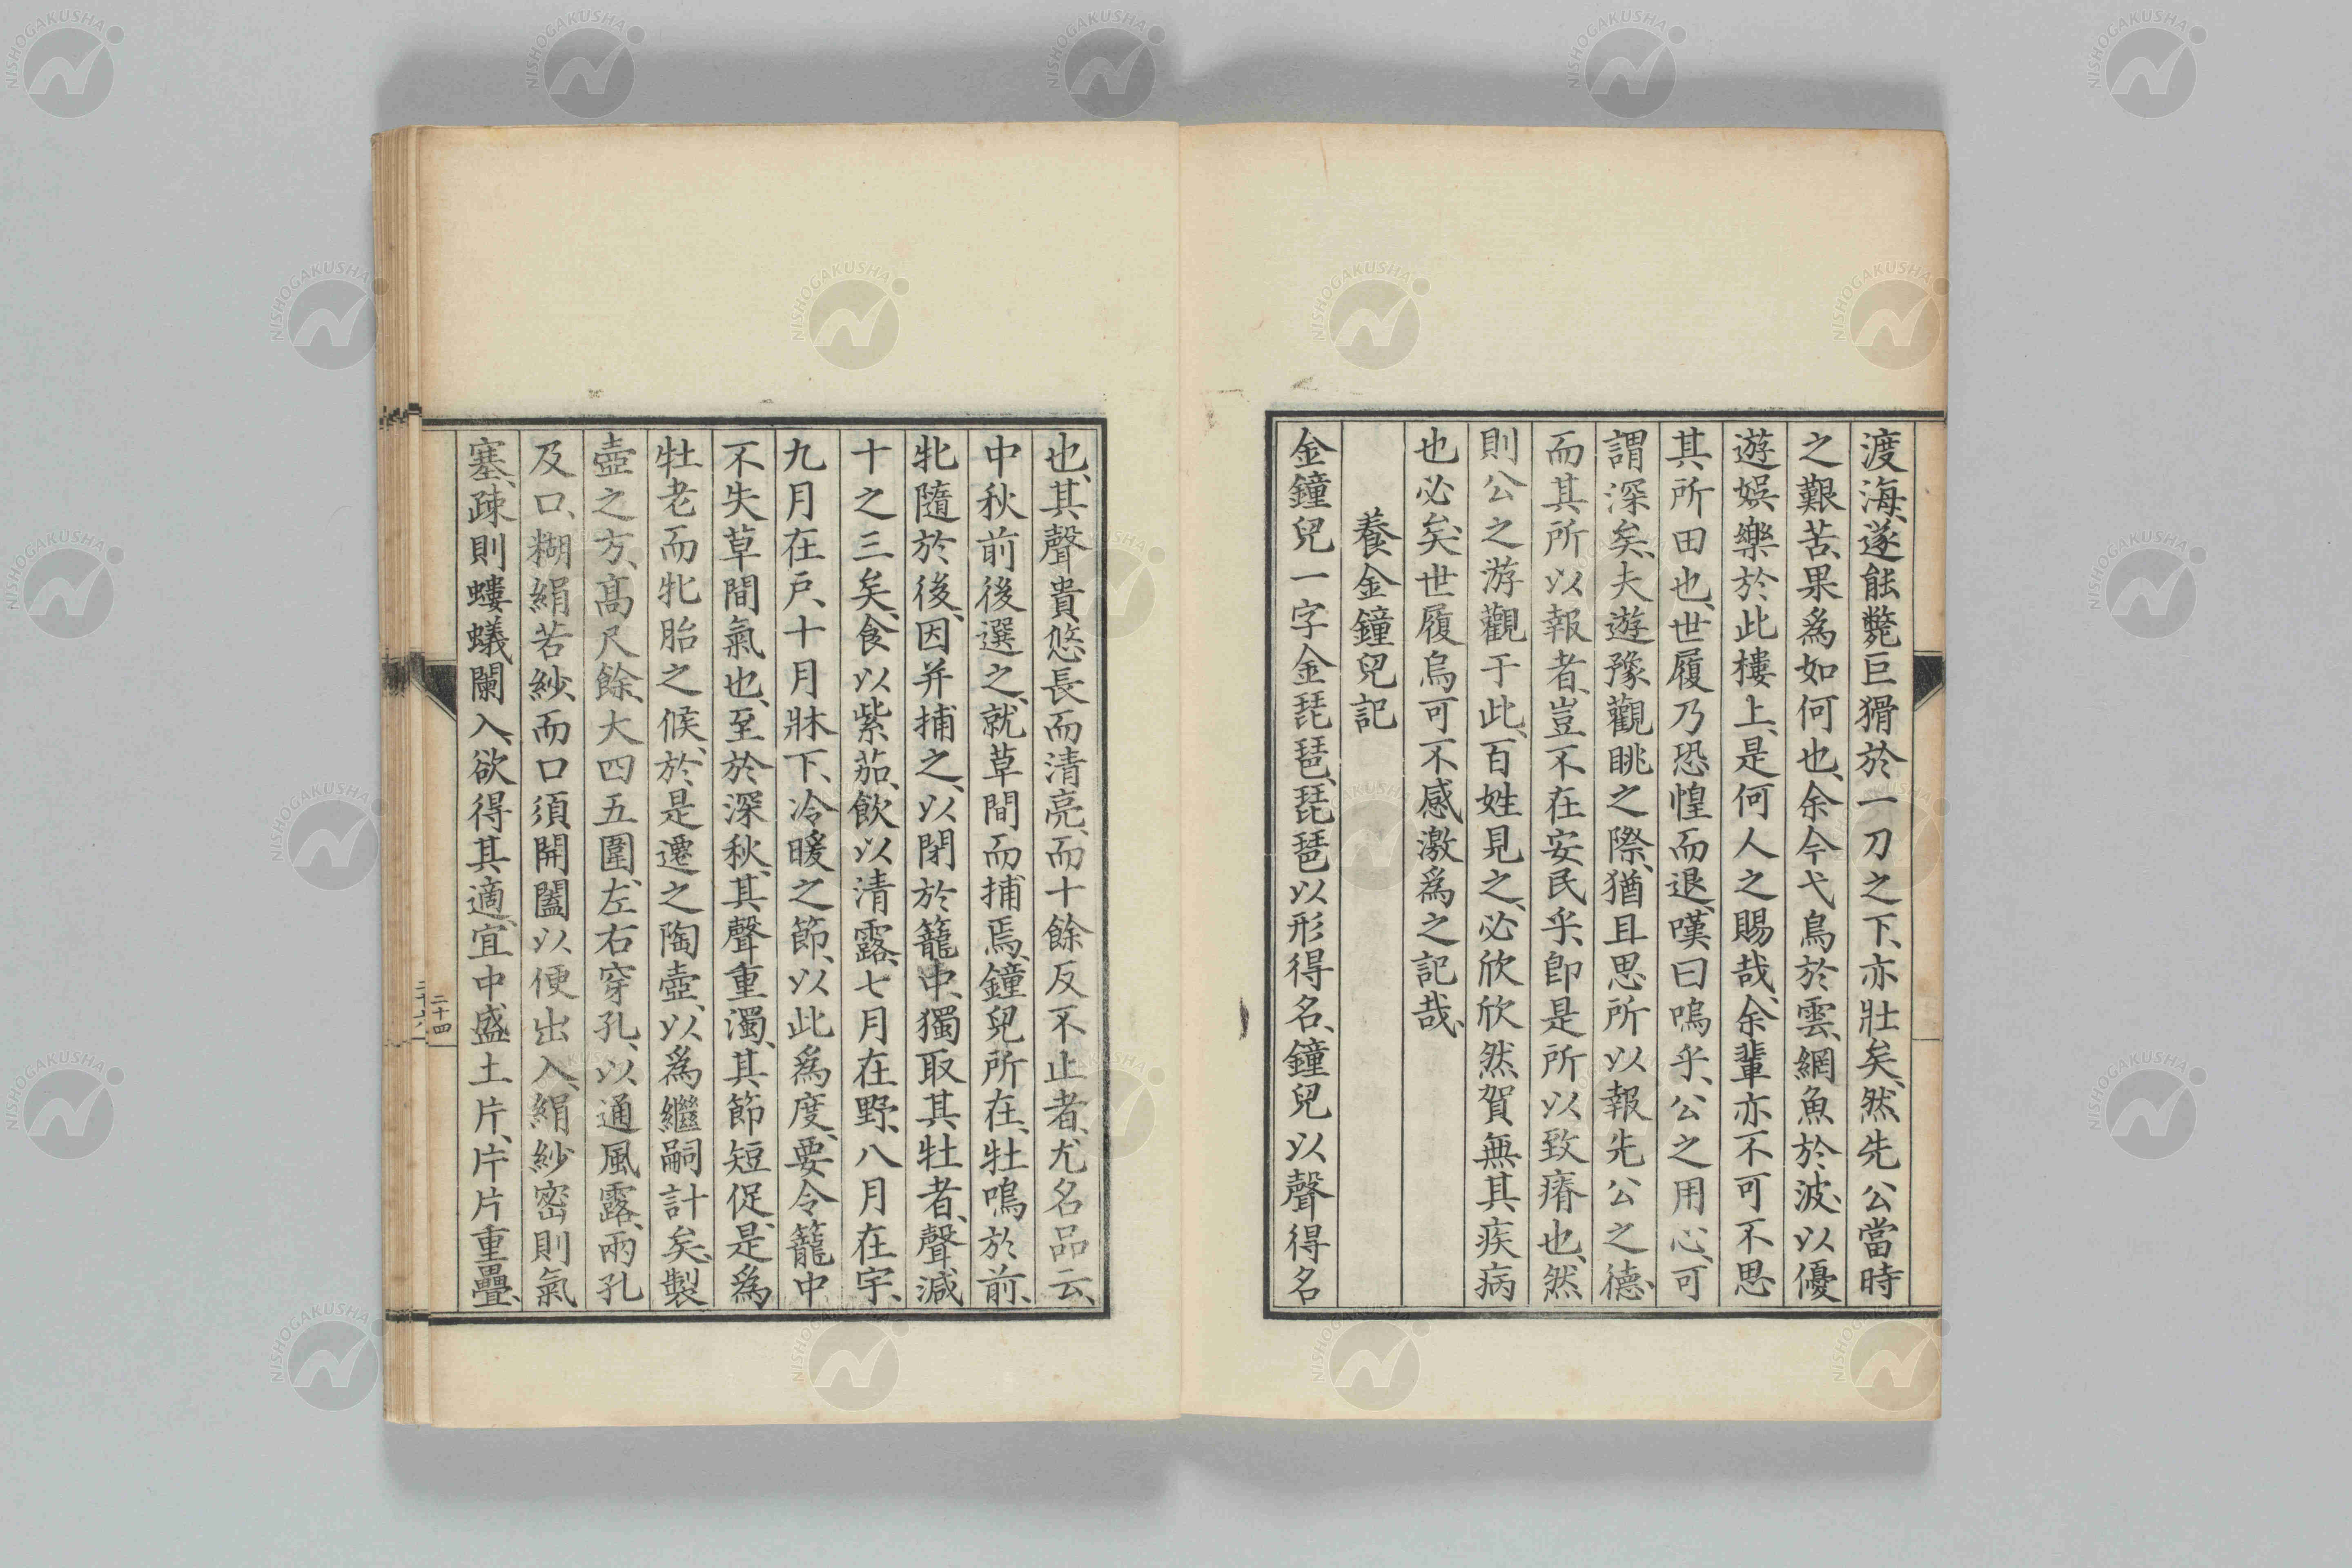 渡海、遂能斃巨猾於一刀之下、亦壯矣、然先公當時
之艱苦、果爲如何也、余今弋鳥於雲、網魚於波、以優
遊娯樂於此樓上、是何人之賜哉、余輩亦不可不思
其所由也、世履乃恐惶而退、嘆曰嗚乎、公之用心、可
謂深矣、夫遊豫觀眺之際、猶且思所以報先公之德、
而其所以報者、豈不在安民乎、卽是所以致瘠也、然
則公之游觀于此、百姓見之、必欣欣然賀無其疾病
也必矣、世履烏可不感激爲之記哉、
養金鐘兒記
金鐘兒一字金琵琶、琵琶以形得名、鐘兒以聲得名
也、其聲貴悠長而清亮、而十餘反不止者、尤名品云、
中秋前後選之、就草間而捕焉、鐘兒所在、牡鳴於前、
牝隨於後、因并捕之、以閉於籠中、獨取其牡者、聲減
十之三矣、食以紫茄、飲以清露、七月在野、八月在宇、
九月在戶、十月牀下、冷暖之節、以此爲度、要令籠中
不失草間氣也、至於深秋、其聲重濁、其節短促、是爲
牡老而牝胎之候、於是遷之陶壺、以爲繼嗣計矣、製
壺之方、高尺餘、大四五圍、左右穿孔、以通風露、兩孔
及口、糊絹若紗、而口須開闔以便出入、絹紗密則氣
塞、疎則螻蟻闌入、欲得其適、宜中盛土片、片片重疊、
二十四
NISHOGAKUSHA